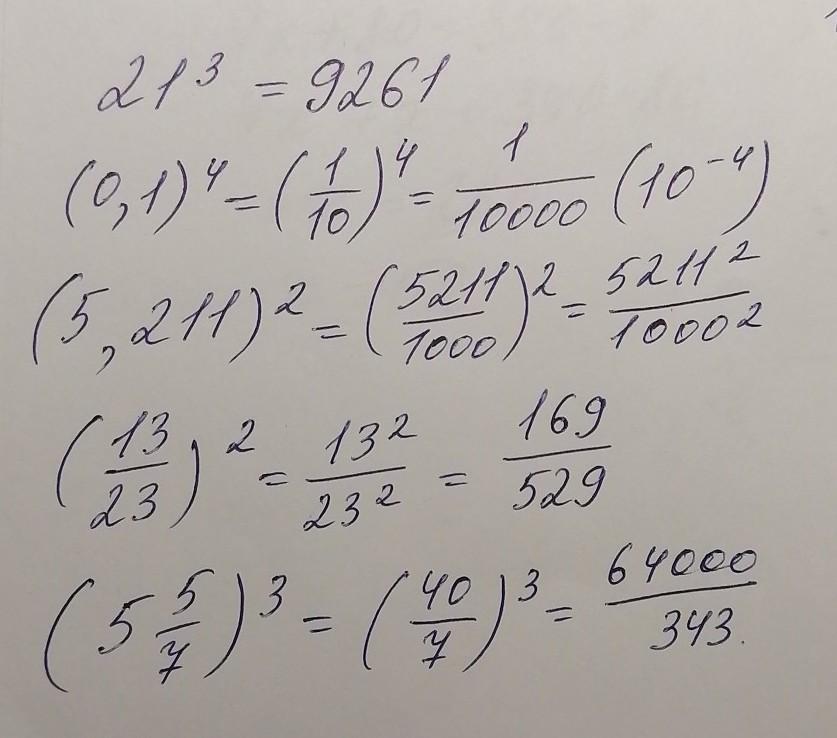 21³ = 9261
(0,1)⁴ = (1/10)⁴ = 1/10000 (10⁻⁴)
(5,211)² = (5211/1000)² = 5211²/1000²
(13/23)² = 13²/23² = 169/529
(5 5/7)³ = (40/7)³ = 64000/343.